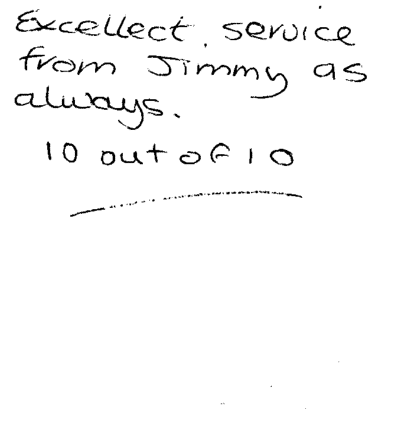 Excellect. service
from Jimmy as
always.
10 out of 10